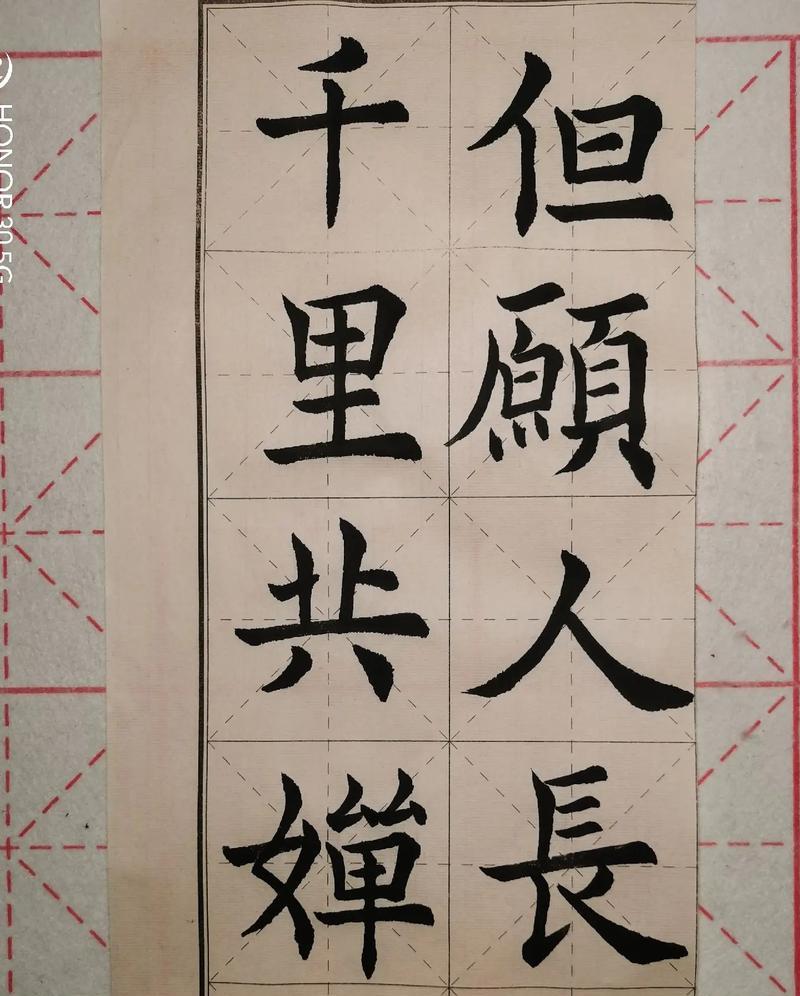 但願人長
千里共嬋
HONOR 30 5G